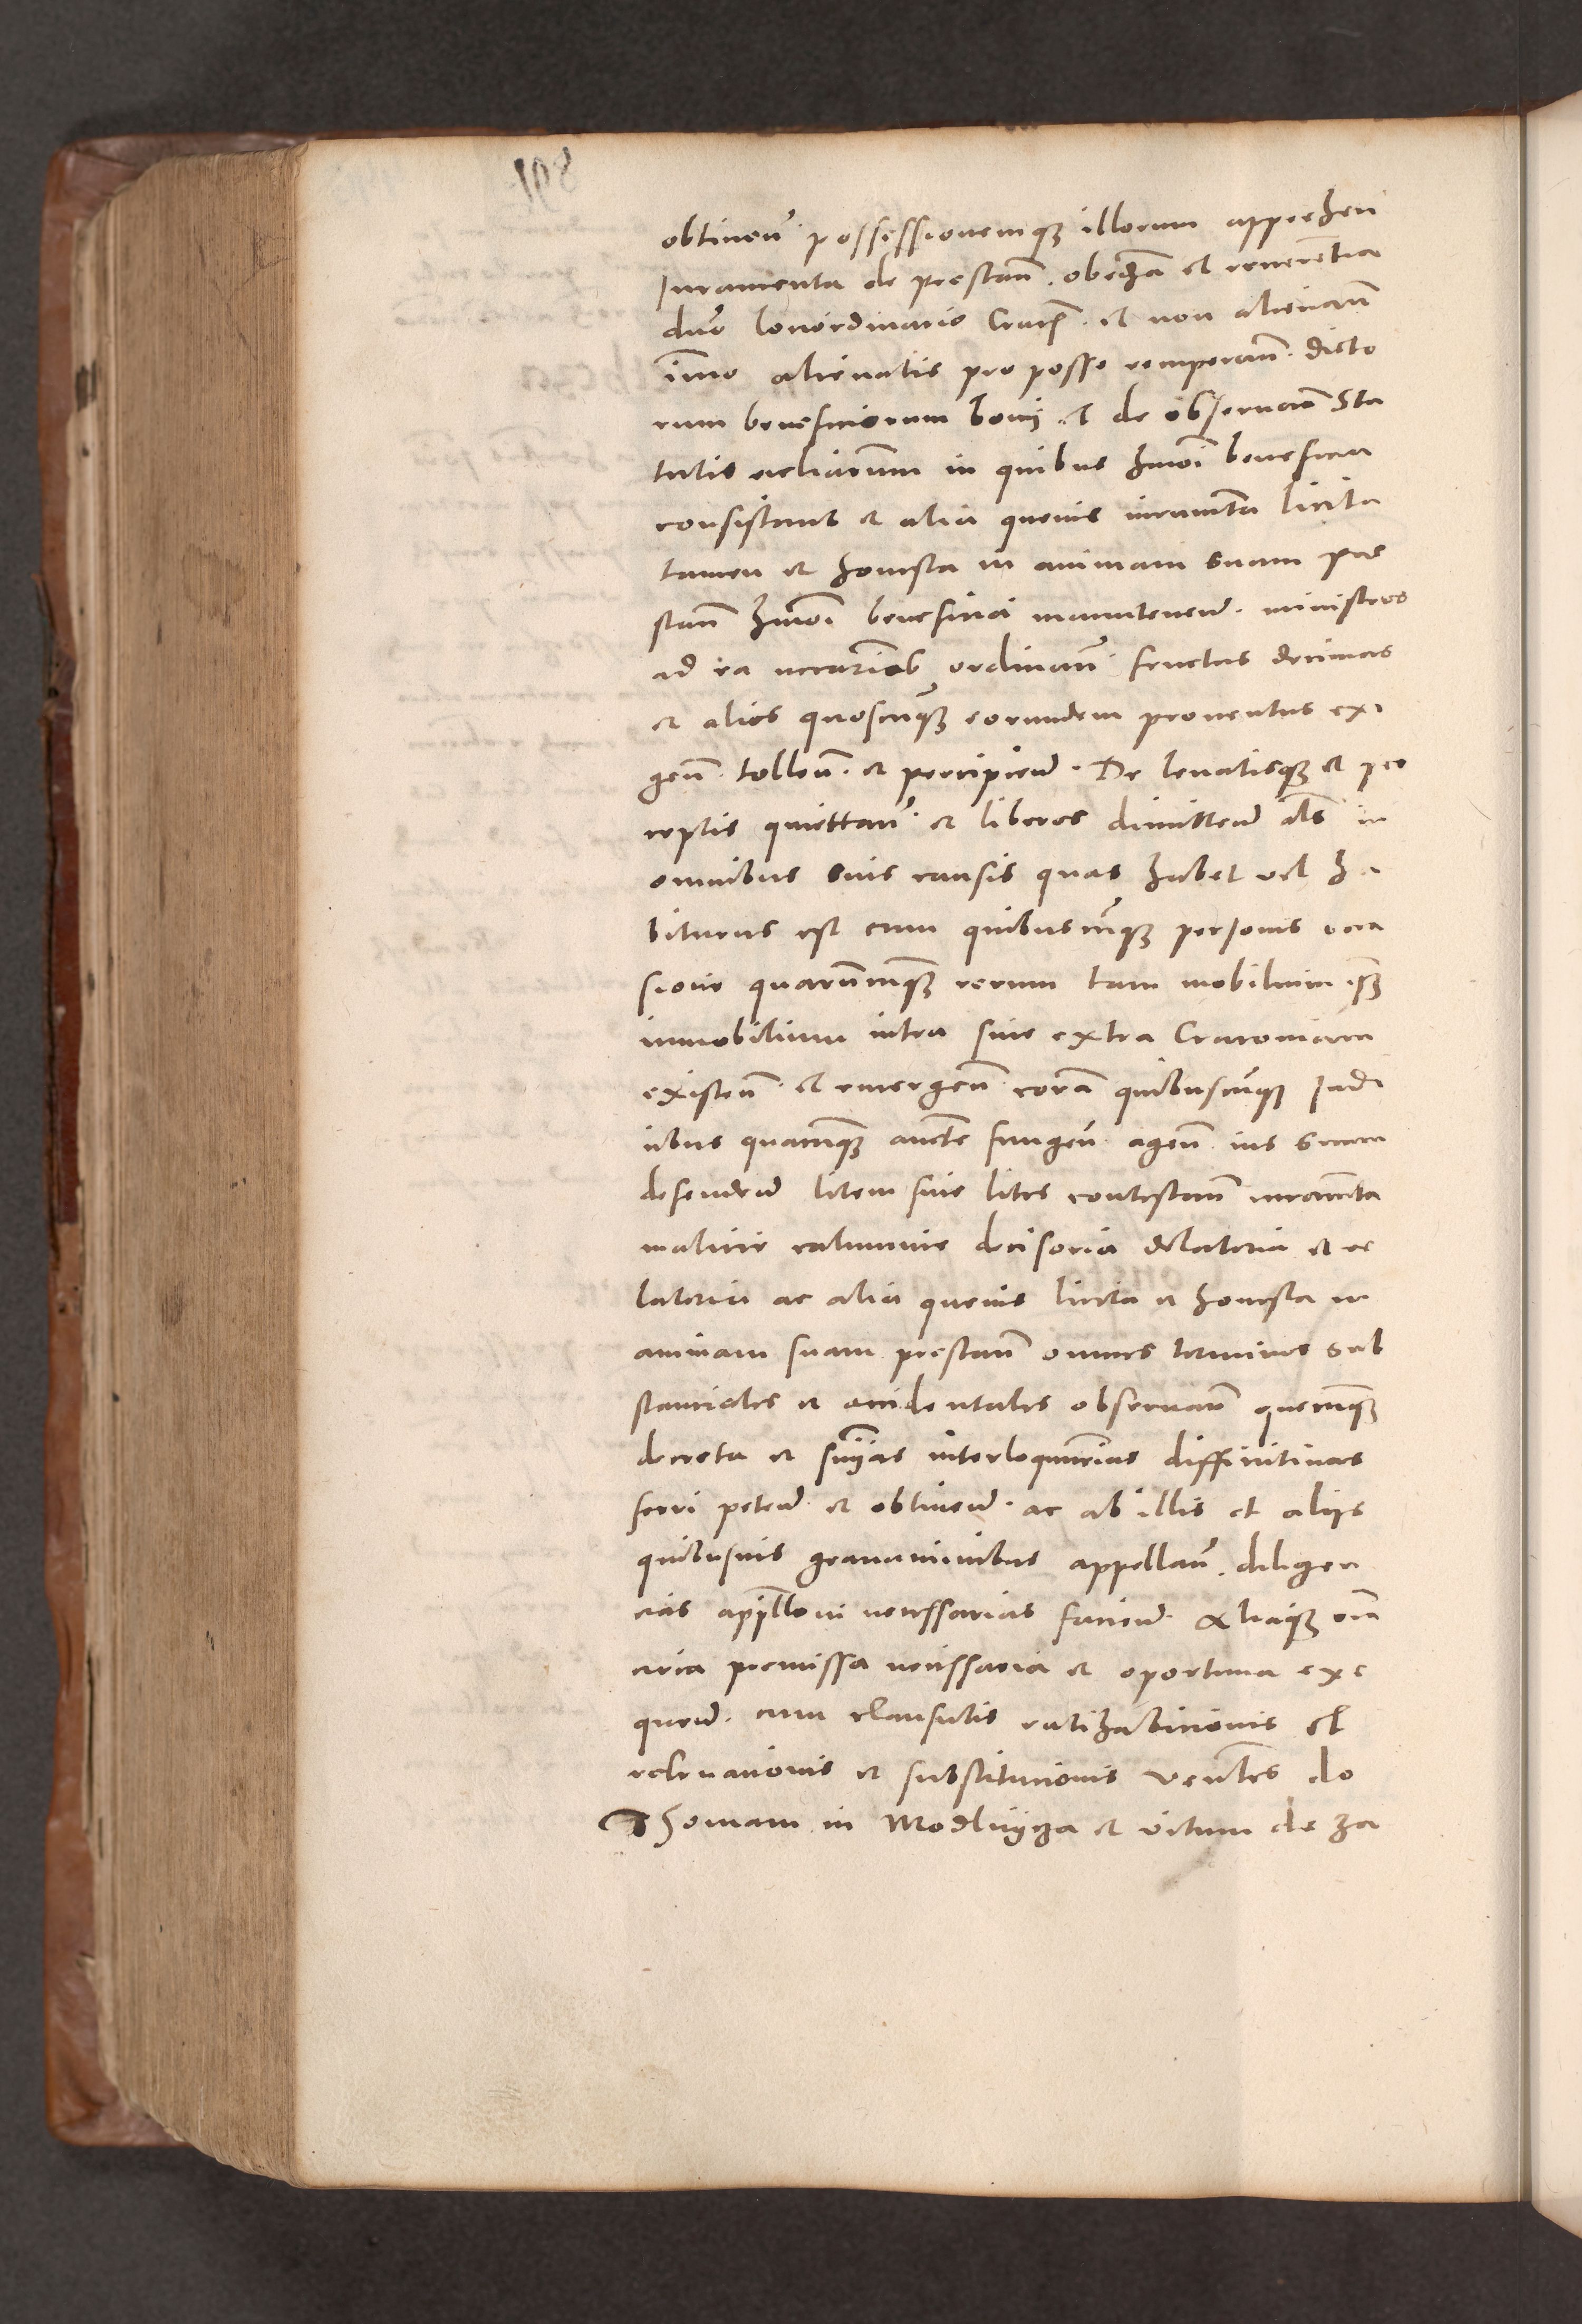 obtinen̄ possessionemq3 illorum apprehen
Iuramenta de prestan̄. obedn̄a et reuerentia
dno loci ordinario Crac̄. et non alienan̄
imo alienatis pro posse recuperan̄. dicto
rum beneficiorum bonis et de obseruan̄ Sta
tutis eccliarum in quibus hmōi beneficia
consistant et alia queuis iuramta licita
tamen et honesta in animam suam pre
stan̄ hmōi beneficia manutenend. ministros
ad ea necarios ordinan̄. fructus decimas
et alios quoscunq3 eorundem prouentus exi
gen̄. tollen̄. et percipiend. De leuatisq3 et per
ceptis quiettan̄. et liberos dimittend als in
omnibus suis causis quas habet vel ha
biturus est cum quibuscunq3 personis occa
sione quarumcunq3 rerum tam mobilium q3
immobilium intra siue extra Cracouiam
existen̄. et emergen̄. coram quibuscunq3 Iudi
cibus quacunq3 aucte fungen̄. agen̄. ius suum
defendend litem siue lites contestan̄ iuramta
malicie calumnie decisoria delatoria et re
latoria ac alia queuis licita et honesta in
animam suam prestan̄ omnes terminos sub
stanciales et accidentales obseruan̄ quecunq3
decreta et snīas interloqutorias diffinitiuas
ferri petend. et obtinend. ac ab illis et aliis
quibusuis grauaminibus appellan̄. diligen
cias appelloni necessarias faciend. Aliaq3 oīa
circa premissa necessaria et oportuna exe
quend. cum clausulis ratihabicionis et
releuacionis et substitucionis ven̄les do
Thomam in Modlnycza et vitum de za